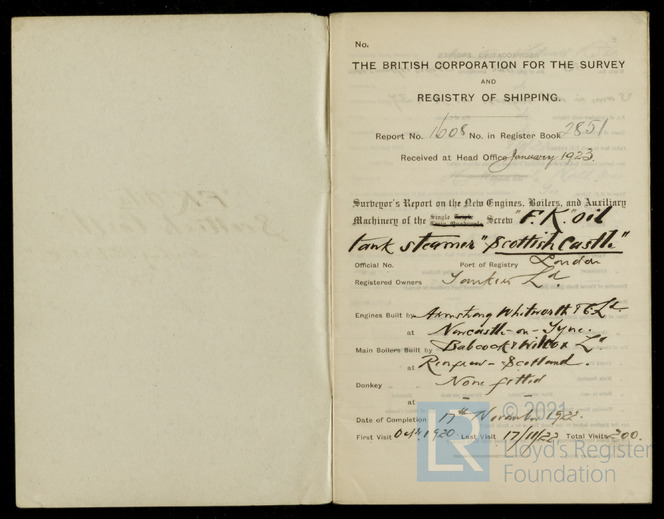 No.
THE BRITISH CORPORATION FOR THE SURVEY
AND
REGISTRY OF SHIPPING.
Report No. 1608 No. in Register Book 2851
Received at Head Office January 1923
Surveyor's Report on the New Engines, Boilers, and Auxiliary
Machinery of the Single Triple Twin Quadruple Screw "F.K." oil
tank steamer "Scottish Castle"
Official No. Port of Registry London
Registered Owners Tankers Ld.
Engines Built by Armstrong Whitworth & Co Ld.
at Newcastle-on-Tyne.
Main Boilers Built by Babcock & Wilcox Ld
at Renfrew - Scotland.
Donkey None fitted
at —
Date of Completion 17th November 1922.
First Visit Octr 1920 Last Visit 17/11/22 Total Visits 200.
LR
© 2021
Lloyd's Register
Foundation